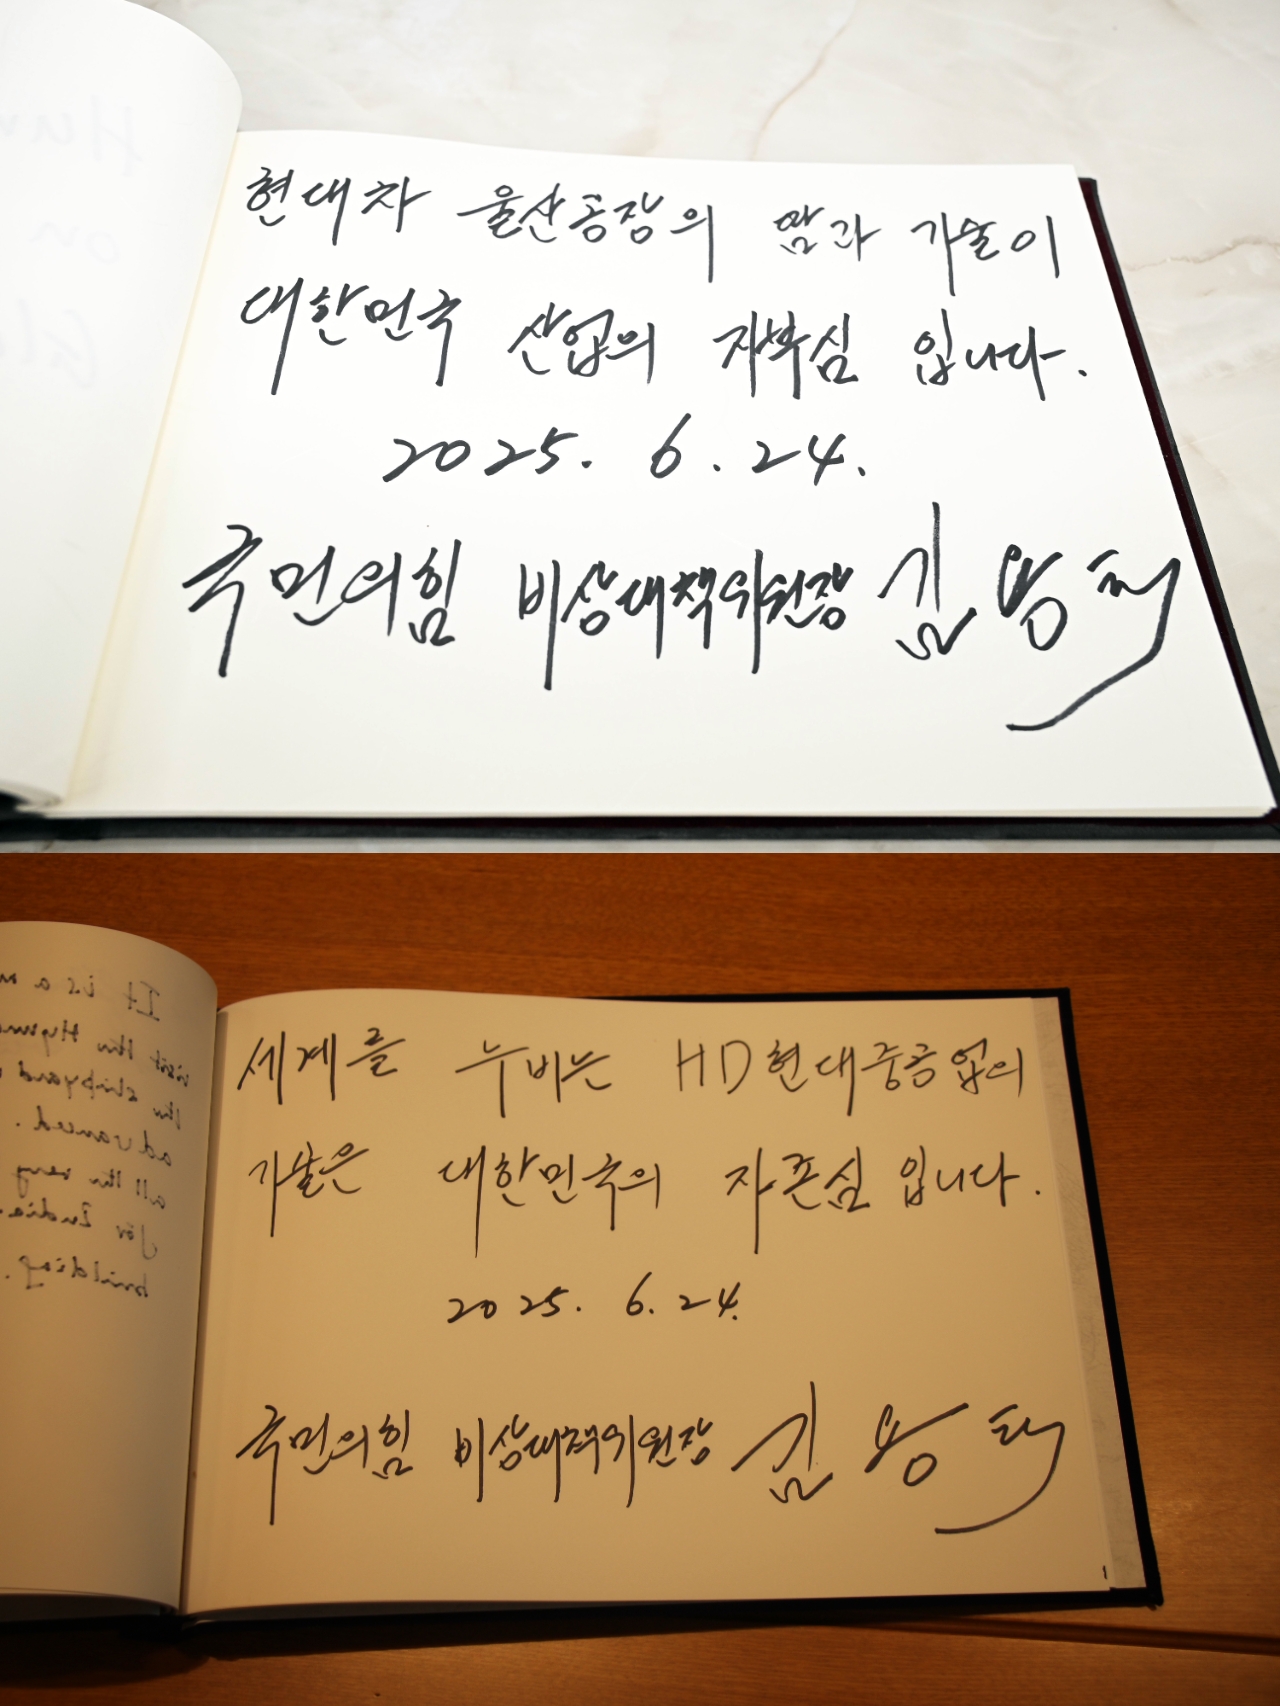 현대차 울산공장의 땀과 기술이
대한민국 산업의 자부심 입니다.
2025. 6. 24.
국민의힘 비상대책위원장 김용태
It is a
visit the
the shipyard
advanced.
all the very
for India
building.
세계를 누비는 HD현대중공업의
기술은 대한민국의 자존심 입니다.
2025. 6. 24.
국민의힘 비상대책위원장 김용태
1